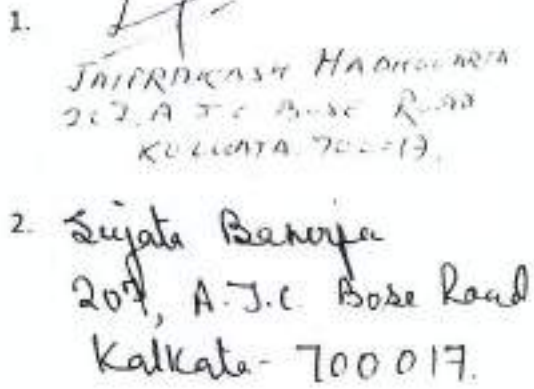 1.
JAIPRAKASH
207, A.J.C BOSE ROAD
KOLKATA 700017.
2. Sujata Banerjee
207, A.J.C. Bose Road
Kalkata- 700 017.